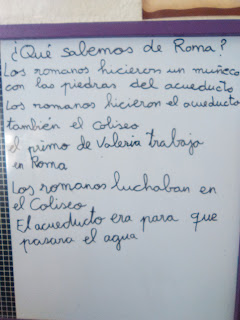 ¿Qué sabemos de Roma?
Los romanos hicieron un muñeco
con las piedras del acueducto
Los romanos hicieron el acueducto
también el Coliseo
el primo de Valeria trabaja
en Roma
Los romanos luchaban en
el Coliseo
El acueducto era para que
pasara el agua